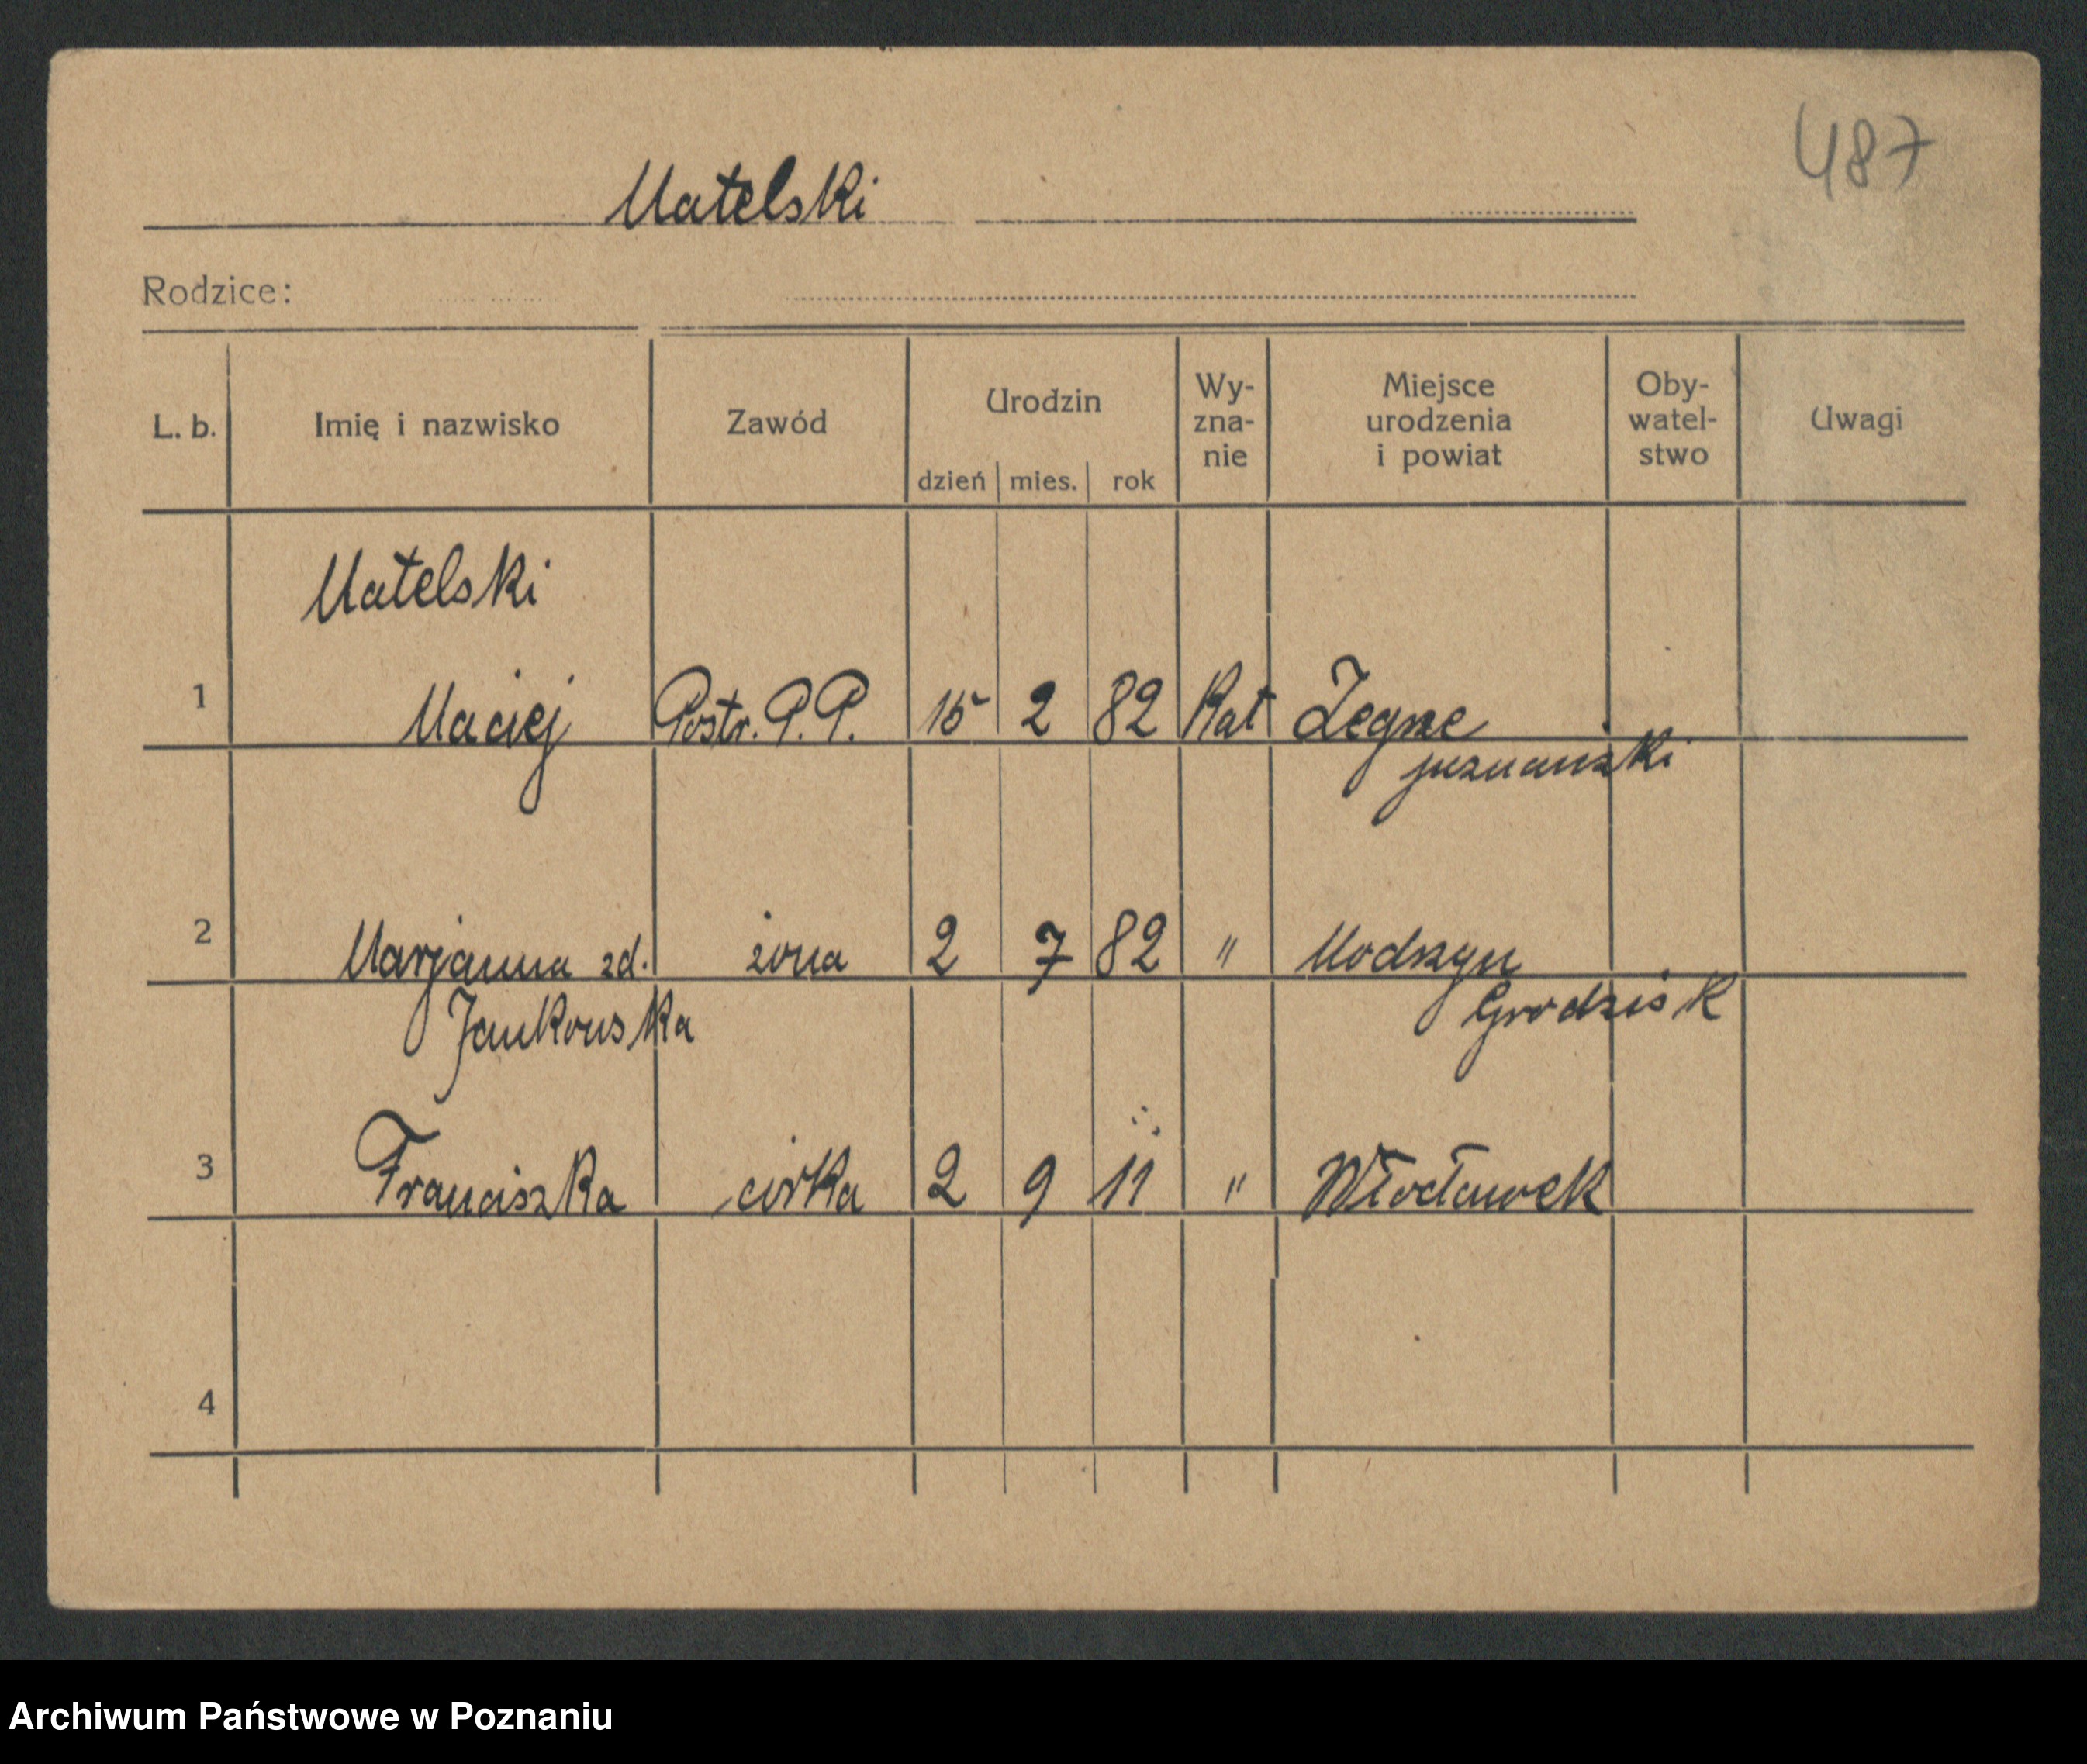 487
Matelski
Rodzice:
L. b. Imię i nazwisko Zawód Urodzin dzień mies. rok Wy-zna-nie Miejsce urodzenia i powiat Oby-watel-stwo Uwagi
Matelski
1 Maciej Postr. P. P. 15 2 82 Kat Żegrze
poznański
2 Marjanna zd. żona 2 7 82 " Modrzyn
Jankowska Grodzisk
3 Franciszka córka 2 9 11 " Włocławek
4
Archiwum Państwowe w Poznaniu